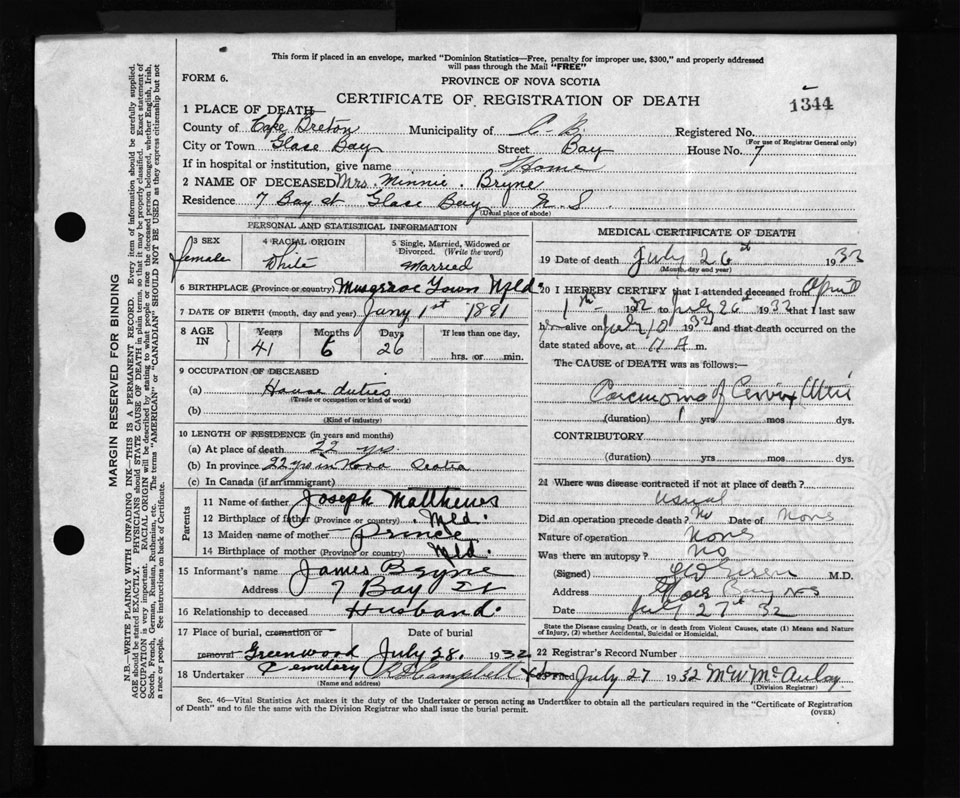 This form if placed in an envelope, marked "Dominion Statistics—Free, penalty for improper use, $300," and properly addressed
will pass through the Mail "FREE"
FORM 6.
PROVINCE OF NOVA SCOTIA
CERTIFICATE OF REGISTRATION OF DEATH
1344
1 PLACE OF DEATH
County of Cape Breton Municipality of C. B. Registered No.
(For use of Registrar General only)
City or Town Glace Bay Street Bay House No. 7
If in hospital or institution, give name Home
2 NAME OF DECEASED Mrs. Minnie. Bryne
Residence 7 Bay st Glace Bay N. S.
(Usual place of abode)
PERSONAL AND STATISTICAL INFORMATION
3 SEX 4 RACIAL ORIGIN 5 Single, Married, Widowed or
Divorced. (Write the word)
female White Married
6 BIRTHPLACE (Province or country) Musgrave Town Nfld.
7 DATE OF BIRTH (month, day and year) Jany 1st 1891
8 AGE IN Years Months Days If less than one day,
41 6 26 hrs. or min.
9 OCCUPATION OF DECEASED
(a) House duties
(Trade or occupation or kind of work)
(b)
(Kind of industry)
10 LENGTH OF RESIDENCE (in years and months)
(a) At place of death 22 yrs.
(b) In province 22 yrs in Nova Scotia
(c) In Canada (if an immigrant)
Parents
11 Name of father Joseph Matthews
12 Birthplace of father (Province or country) Nfld.
13 Maiden name of mother Prince
14 Birthplace of mother (Province or country) Nfld.
15 Informant's name James Bryne
Address 7 Bay St
16 Relationship to deceased Husband.
17 Place of burial, cremation or Date of burial
removal Greenwood July 28. 1932
Cemetery
18 Undertaker Campbell
(Name and address)
MEDICAL CERTIFICATE OF DEATH
19 Date of death July 26th 1932
(Month, day and year)
20 I HEREBY CERTIFY that I attended deceased from April
1932 to July 26th 1932 that I last saw
her alive on July 1932 and that death occurred on the
date stated above, at 11 A m.
The CAUSE OF DEATH was as follows:—
Carcinoma of Cervix Uteri
(duration) 1 yrs mos dys.
CONTRIBUTORY
(duration) yrs. mos. dys.
21 Where was disease contracted if not at place of death?
usual
Did an operation precede death? No Date of None
Nature of operation None
Was there an autopsy? No
(Signed) M.D.
Address Glace Bay NS
Date July 27th 32
State the Disease causing Death, or in Death from Violent Causes, state (1) Means and Nature
of Injury, (2) whether Accidental, Suicidal or Homicidal.
22 Registrar's Record Number
July 27 1932 McAulay
(Division Registrar)
Sec. 46—Vital Statistics Act makes it the duty of the Undertaker or person acting as Undertaker to obtain all the particulars required in the "Certificate of Registration
of Death" and to file the same with the Division Registrar who shall issue the burial permit.
(OVER)
MARGIN RESERVED FOR BINDING
N.B.—WRITE PLAINLY WITH UNFADING INK—THIS IS A PERMANENT RECORD. Every item of information should be carefully supplied.
AGE should be stated EXACTLY. PHYSICIANS should STATE CAUSE OF DEATH in plain terms, so that it may be properly classified. Exact statement of
OCCUPATION is very important. RACIAL ORIGIN will be described by stating to what people or race the deceased person belonged, whether English, Irish,
Scotch, French, German, Russian, Ruthenian, etc. The terms "AMERICAN" or "CANADIAN" SHOULD NOT BE USED as they express citizenship but not
a race or people. See instructions on back of Certificate.